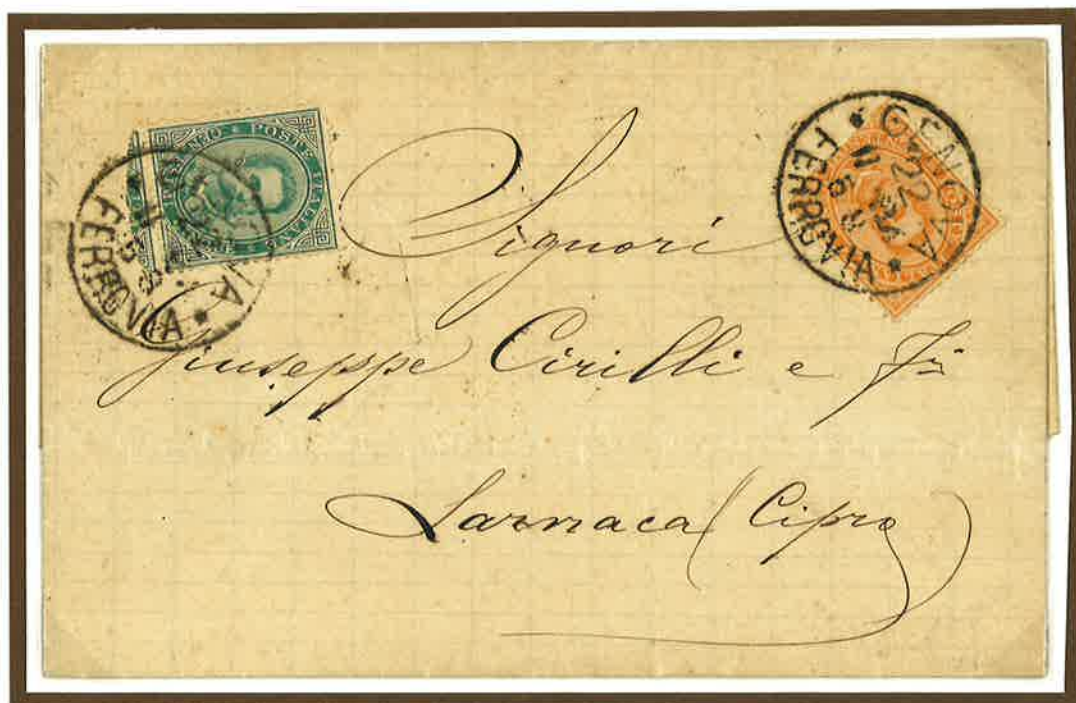 POSTE ITALIANE
GENOVA
FERROVIA
FERROVIA
Signori
Giuseppe Cirilli e Fi
Larnaca (Cipro)